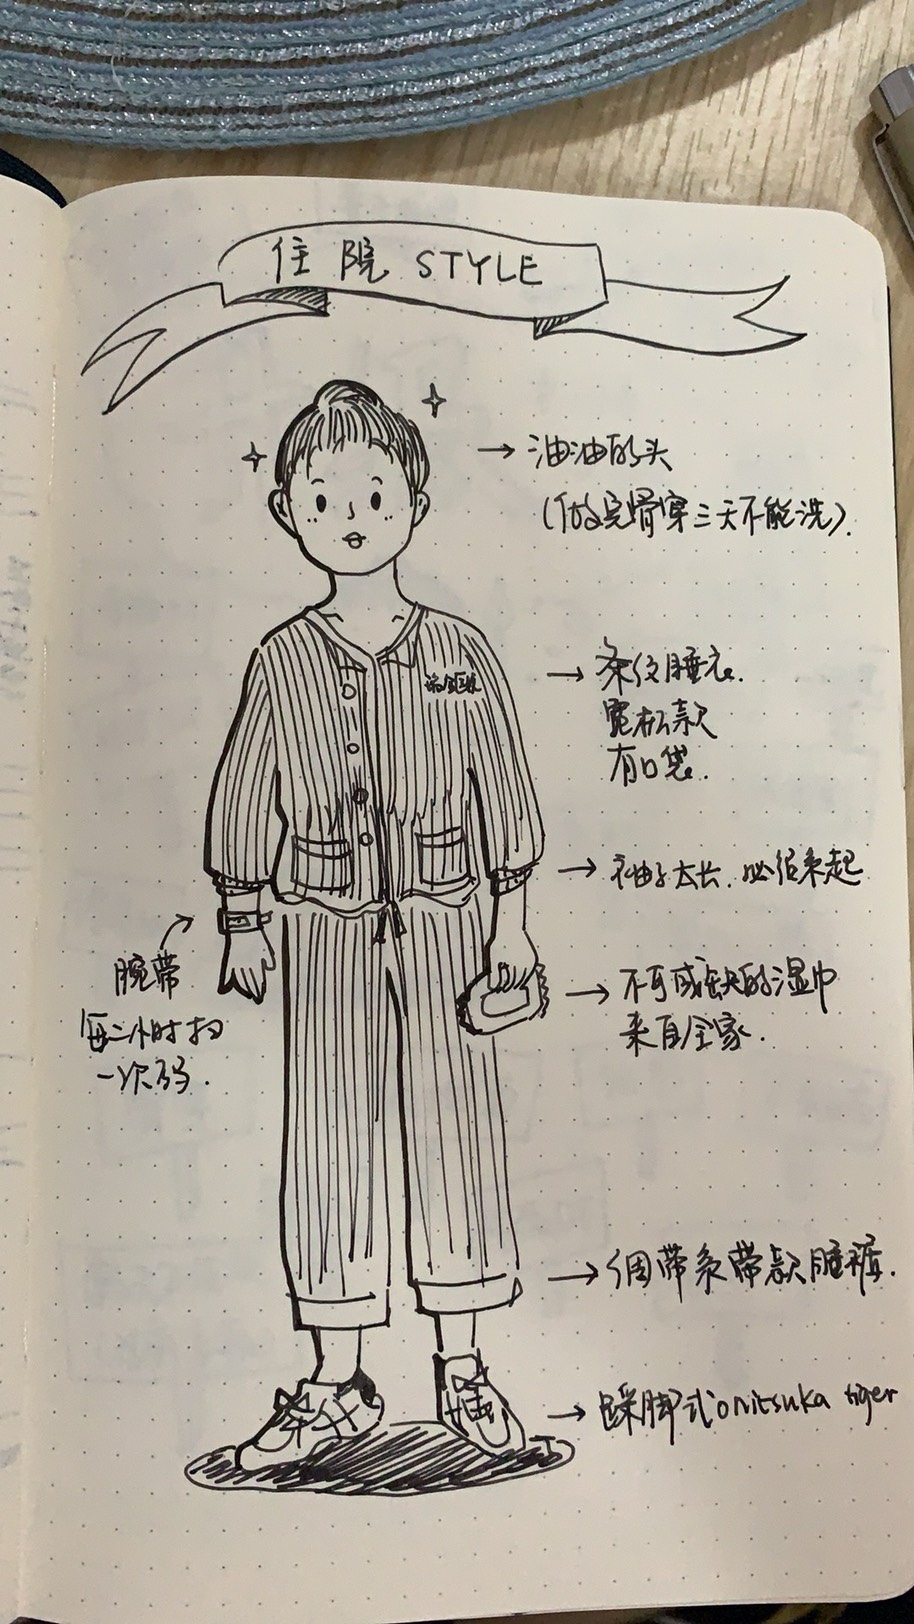 住院 STYLE
→ 油油的头
(做完骨穿三天不能洗).
→ 条纹睡衣.
宽松款
有口袋.
→ 袖子太长. 必须卷起
腕带
每二小时扫
一次码.
→ 不可或缺的湿巾
来自全家.
→ 带款睡裤.
→ 踩脚式onitsuka tiger